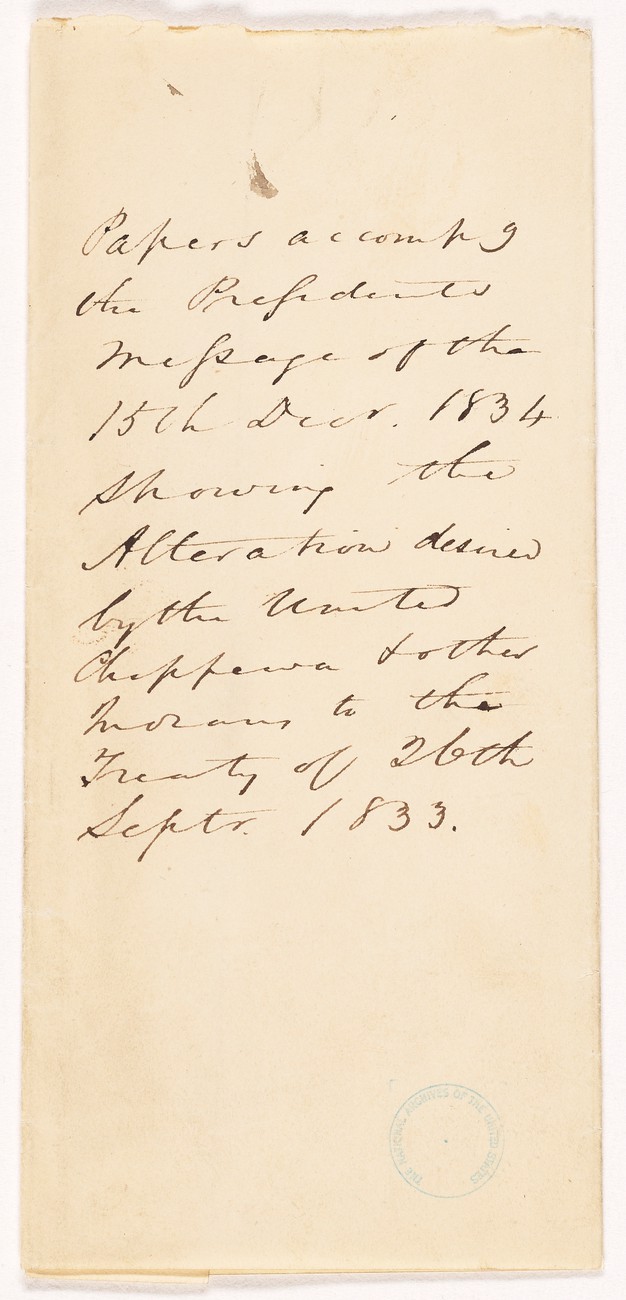 Papers accompg
the Presidents
Message of the
15th Decr. 1834
showing the
Alteration desired
by the United
Chippewa & other
Indians to the
Treaty of 26th
Septr. 1833.
THE NATIONAL ARCHIVES OF THE UNITED STATES